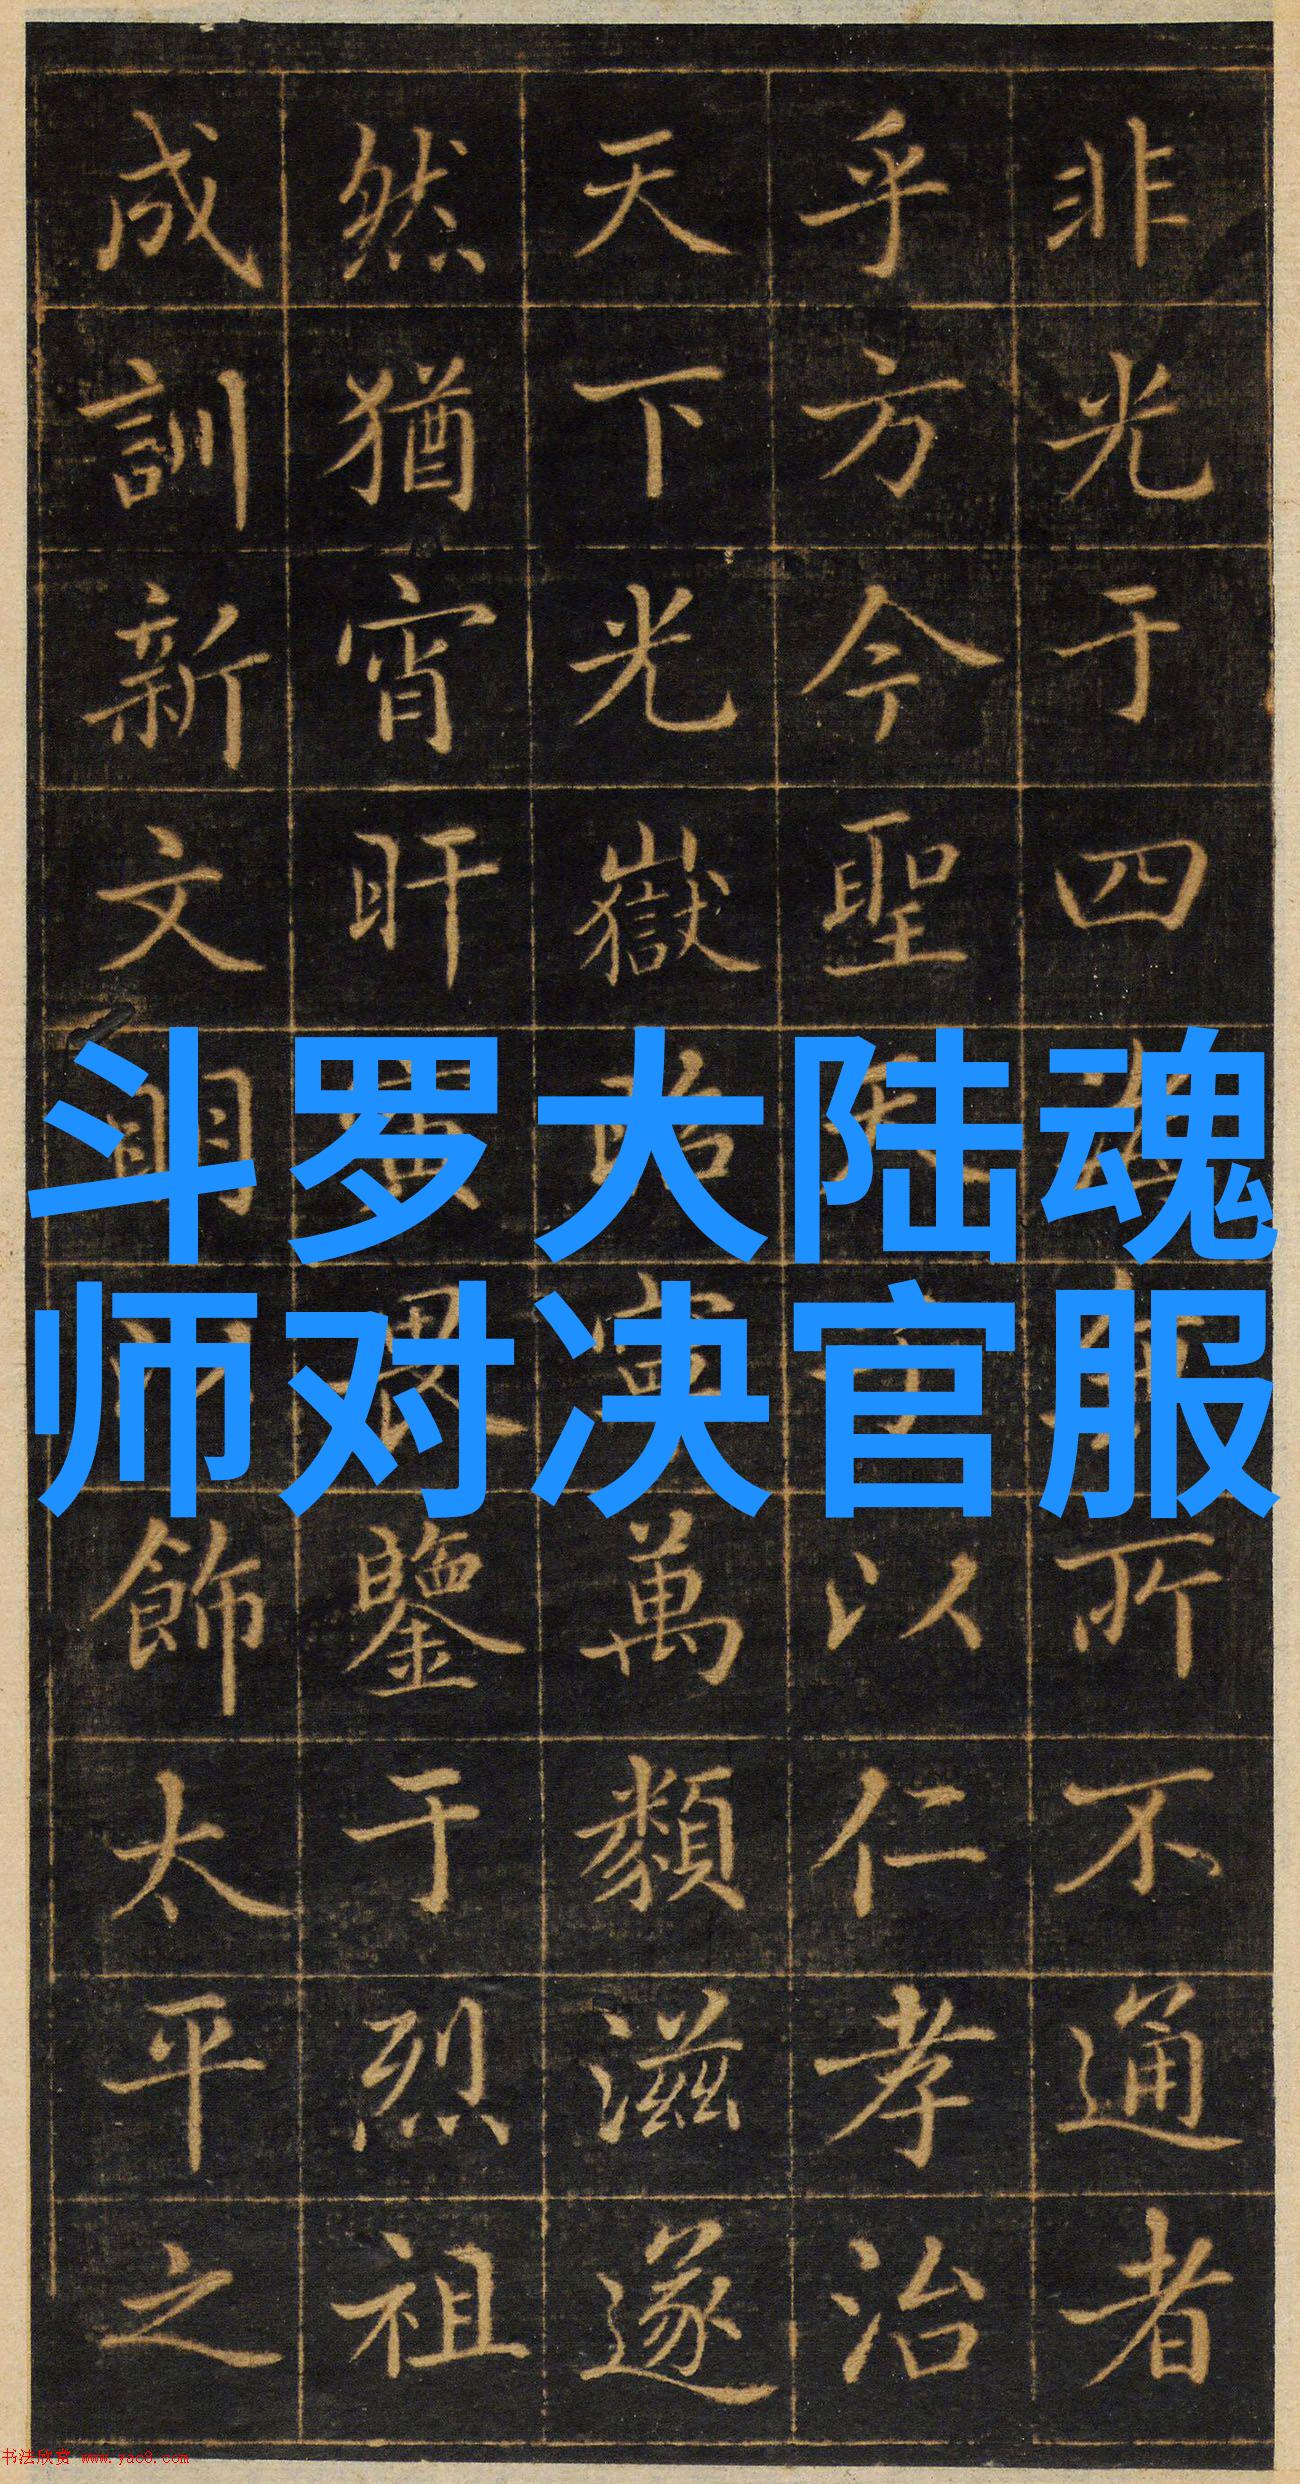 非光于四海無所不通者
乎方今聖天子以仁孝治
天下光嶽萬類滋遂
然猶宵旰寅畏鑒于烈祖
成訓新文明以飾太平之
斗罗大陆魂
师对决官服
书法欣赏 www.yac8.com